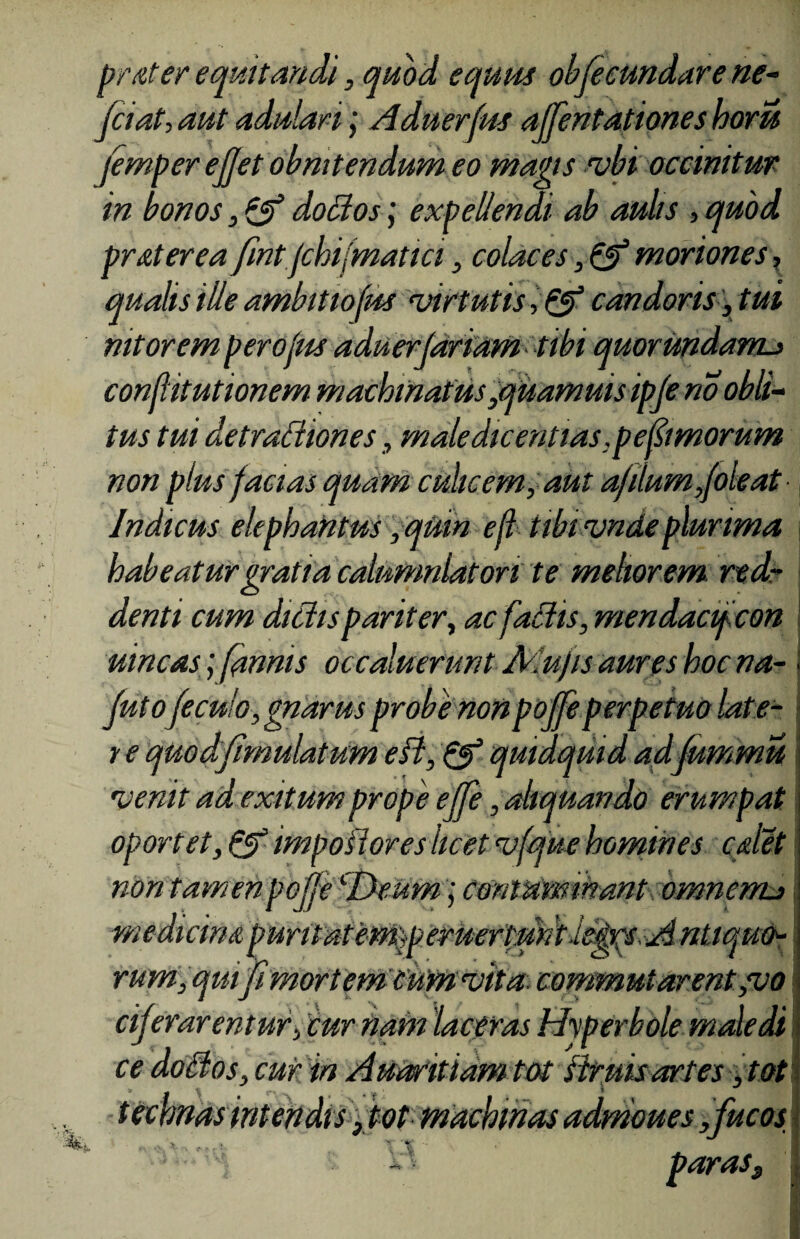 præter equitandi, quòd equus obsecundare ne-
sciat, aut adulari; Aduersus assentationes horũ
semper esset obnitendum eo magis vbi occinitur
in bonos, & doctos; expellendi ab aulis, quòd
præterea sint schismatici, colaces, & moriones,
qualis ille ambitiosus virtutis, & candoris, tui
nitorem perosus aduersariam tibi quorundam
constitutionem machinatus, quamuis ipse nõ obli-
tus tui detractiones, maledicentias, pessimorum
non plus facias quàm culicem, aut asilum, soleat
Indicus elephantus, quin est tibi vnde plurima
habeatur gratia calumniatori te meliorem red-
denti cum dictis pariter, ac factis, mendacij con
uincas; sannis occaluerunt Musis aures hoc na-
suto seculo, gnarus probè non posse perpetuo late-
re quod simulatum est, & quidquid ad summũ
venit ad exitum prope esse, aliquando erumpat
oportet, & impostores licet vsque homines cælet
non tamen posse Deum; contaminant omnem
medicinæ puritatem, peruertunt leges. Antiquo-
rum, qui si mortem cum vita commutarent, vo
ciferarentur, cur nam laceras Hyperbole maledi
ce doctos, cur in Auaritiam tot struis artes, tot
technas intendis, tot machinas admoues, fucos
paras,